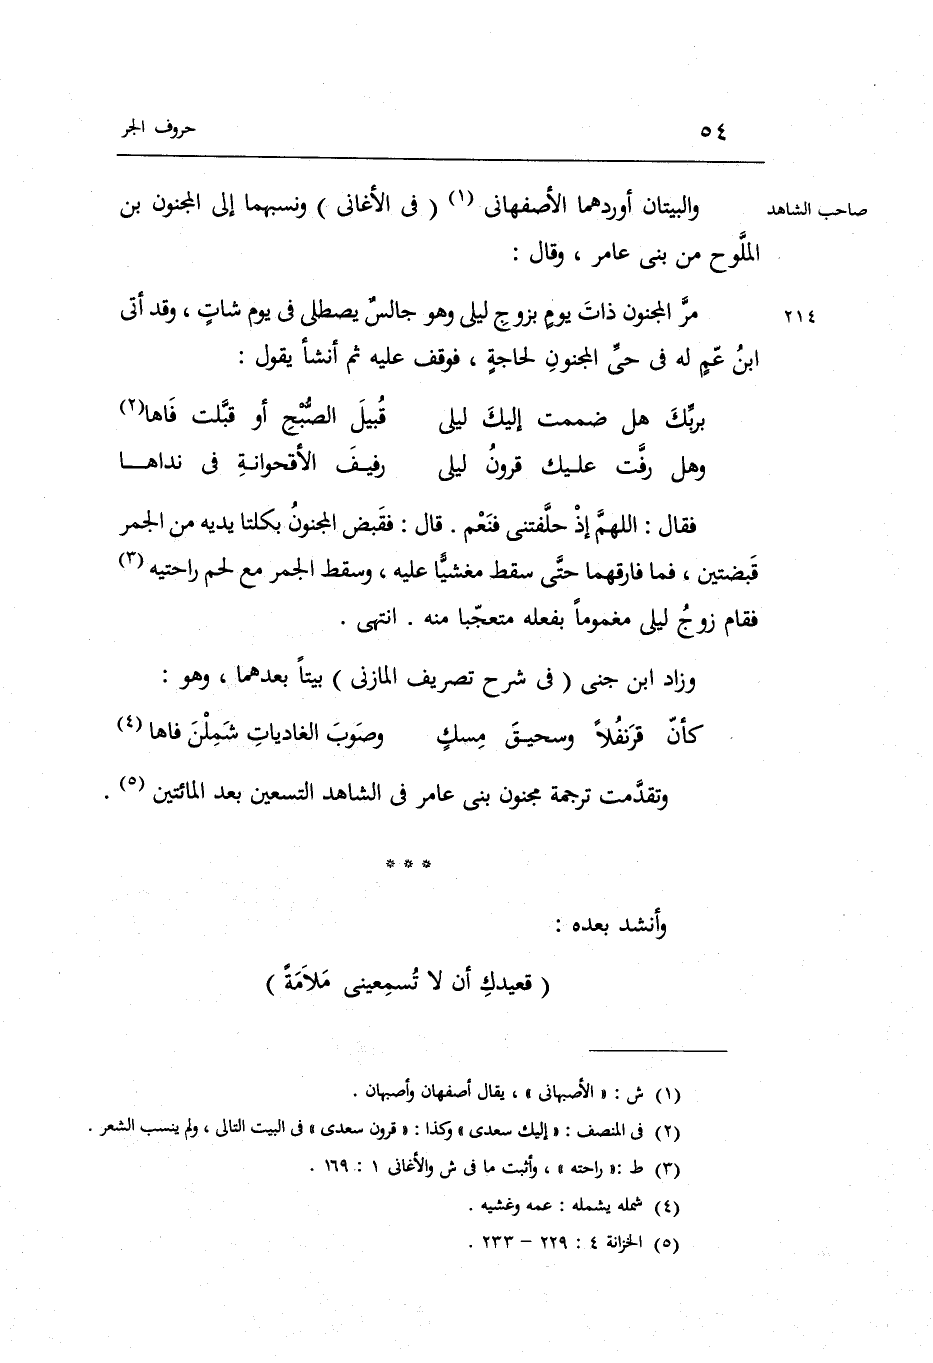 ٥٤ حروف الجر
صاحب الشاهد والبيتان أوردهما الأصفهانى (١) ( فى الأغانى ) ونسبهما إلى المجنون بن
الملَّوح من بنى عامر ، وقال :
٢١٤ مرَّ المجنون ذاتَ يومٍ بزوجِ ليلى وهو جالسٌ يصطلى فى يوم شاتٍ ، وقد أتى
ابنُ عّمٍ له فى حىِّ المجنونِ لحاجةٍ ، فوقف عليه ثم أنشأ يقول :
بربِّكَ هل ضممت إليكَ ليلى قُبيلَ الصُّبْحِ أو قبَّلت فَاها(٢)
وهل رفَّت عليك قرونُ ليلى رفيفَ الأقحوانةِ فى نداها
فقال : اللهمَّ إذْ حلَّفتنى فنَعْم . قال : فقَبض المجنونُ بكلتا يديه من الجمر
قَبضتين ، فما فارقهما حتَّى سقط مغشيًّا عليه ، وسقط الجمر مع لحم راحتيه (٣)
فقام زوجُ ليلى مغموماً بفعله متعجّبا منه . انتهى .
وزاد ابن جنى ( فى شرح تصريف المازنى ) بيتاً بعدهما ، وهو :
كأنّ قرَنفُلاً وسحيقَ مِسكٍ وصَوبَ الغادياتِ شَمِلْنَ فاها (٤)
وتقدَّمت ترجمة مجنون بنى عامر فى الشاهد التسعين بعد المائتين (٥) .
* * *
وأنشد بعده :
( قعيدكِ أن لا تُسمِعينى مَلاَمَةً )
(١) ش : « الأصبهانى » ، يقال أصفهان وأصبهان .
(٢) فى المنصف : « إليك سعدى » وكذا : « قرون سعدى » فى البيت التالى ، ولم ينسب الشعر .
(٣) ط : « راحته » ، وأثبت ما فى ش والأغانى ١ : ١٦٩ .
(٤) شمله يشمله : عمه وغشيه .
(٥) الخزانة ٤ : ٢٢٩ – ٢٣٣ .